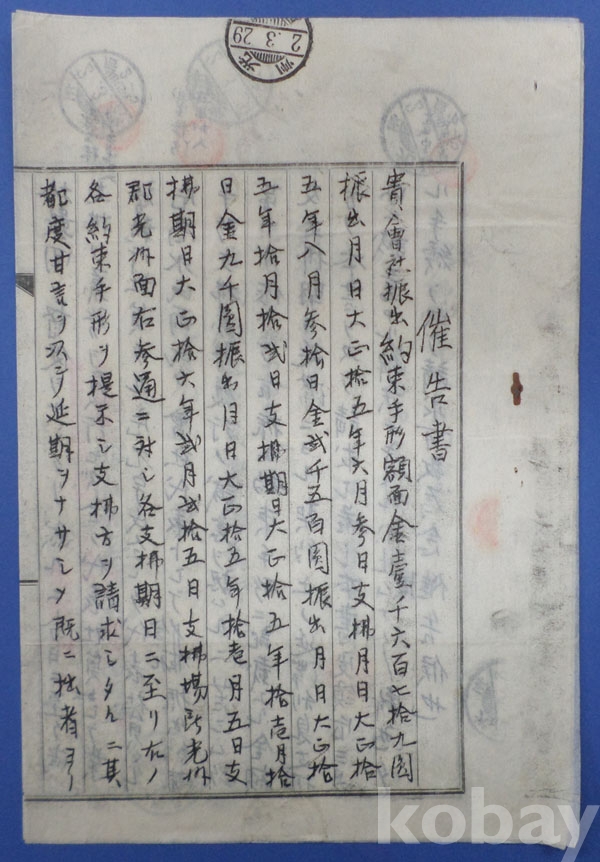 催告書
貴會社振出約束手形額面金壹千六百七拾九圓
振出月日大正拾五年六月参日支拂月日大正拾
五年八月参拾日金貳千五百圓振出月日大正拾
五年拾月拾貳日支拂期日大正拾五年拾壱月拾
日金九千圓振出月日大正拾五年拾壱月五日支
拂期日大正拾六年貳月貳拾五日支拂場所光州
郡光州面右参通ニ対シ各支拂期日ニ至リ右ノ
各約束手形ヲ提示シ支拂方ヲ請求シタルニ其
都度甘言ヲ以シテ延期ヲナサシメ既ニ拙者ヨリ
光州
2.3.29
kobay